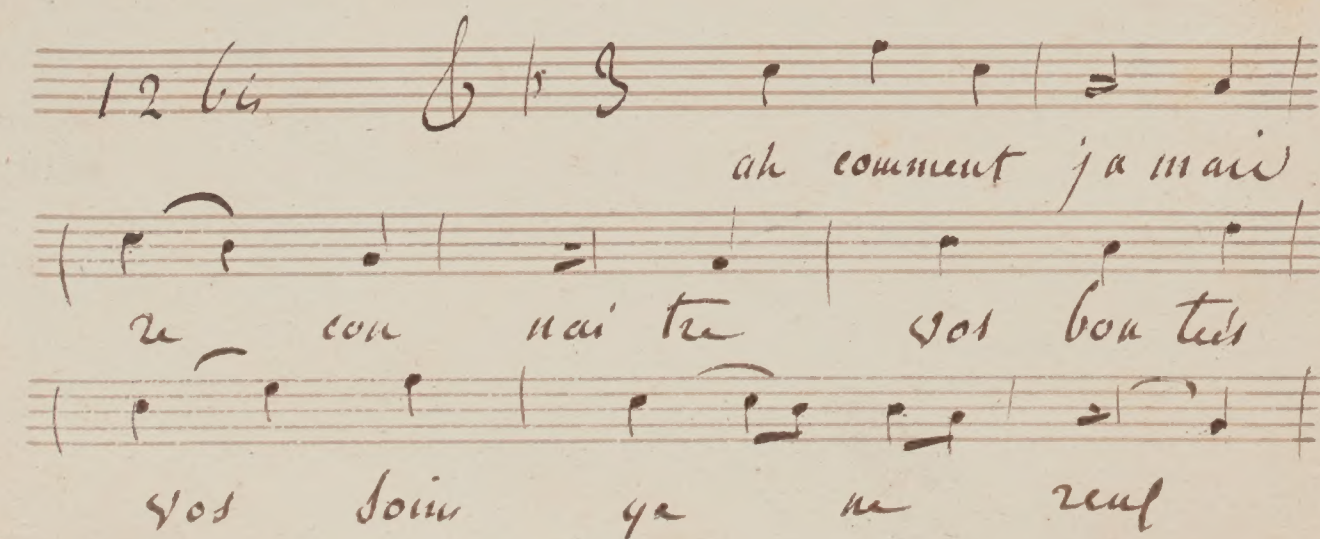 12 bis 3
ah comment ja mais
re con nai tre vos bon tés
vos soins gé né reux